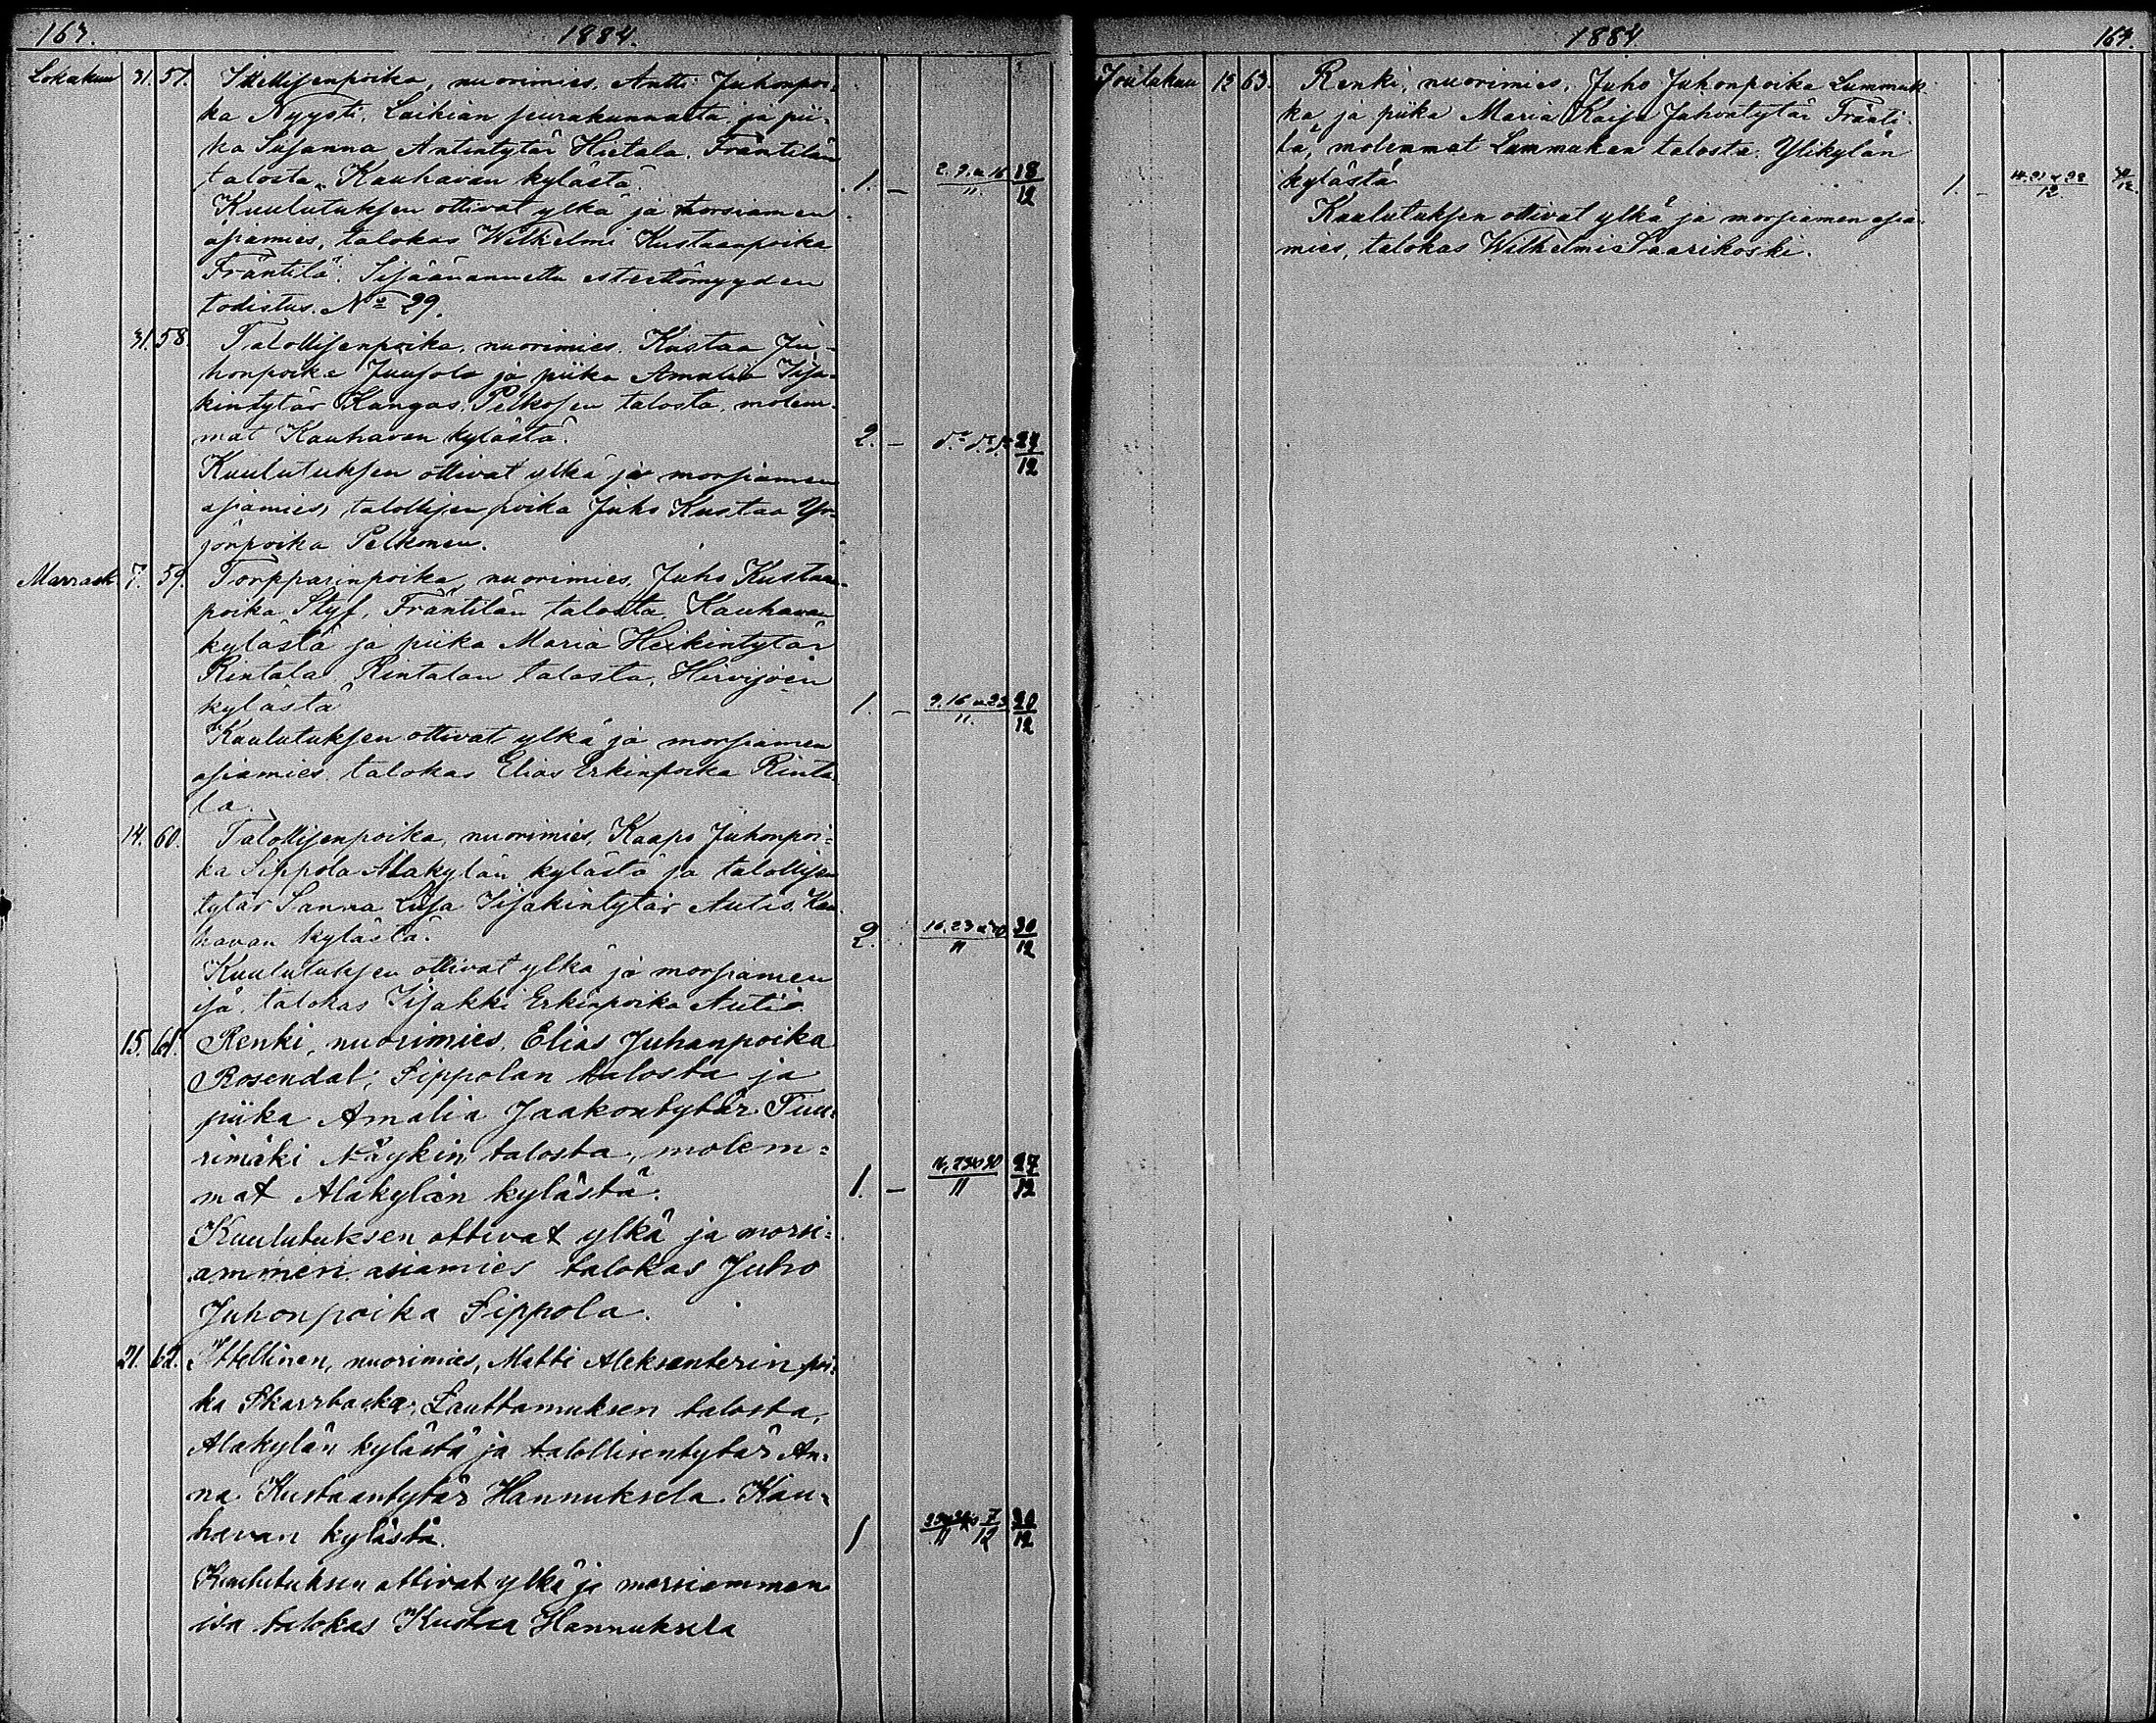 167. 1884.
Lokakuu 31. 57. Ittellisenpoika, nuorimies, Antti Juhonpoi-
ka Nyysti, Laihian seurakunnasta, ja pii-
ka Susanna Antintytär Hietala, Fräntilän
talosta, Kauhavan kylästä. 1. – 2. 9. u 16/11. 18/12
Kuulutuksen ottivat ylkä ja morsiamen
asiamies, talokas Wilhelmi Kustaanpoika
Fräntilä. Sisäänannettu esteettömyyden
todistus. No 29.
31. 58. Talollisenpoika, nuorimies, Kustaa Ju-
honpoika Juusola ja piika Amalia Iisa-
kintytär Kangas, Pelkosen talosta, molem-
mat Kauhavan kylästä. 2. – do do do 27/12
Kuulutuksen ottivat ylkä ja morsiamen
asiamies, talollisen poika Juho Kustaa Yr-
jönpoika Pelkonen.
Marrask. 7. 59. Torpparinpoika, nuorimies, Juho Kustaan-
poika Styf, Fräntilän talosta, Kauhavan
kylästä ja piika Maria Heikintytär
Rintala, Rintalan talosta, Hirvijoen
kylästä 1. – 9. 16 u 23/11. 20/12
Kuulutuksen ottivat ylkä ja morsiamen
asiamies, talokas Elias Erkinpoika Rinta-
la.
14. 60. Talollisenpoika, nuorimies, Kaapo Juhonpoi-
ka Sippola Alakylän kylästä ja talollisen
tytär Sanna Liisa Iisakintytär Autio, Kau-
havan kylästä. 2. 16. 23 u 30/11 30/12
Kuulutuksen ottivat ylkä ja morsiamen
isä, talokas Iisakki Erkinpoika Autio.
15. 61. Renki, nuorimies, Elias Juhanpoika
Rosendal, Sippolan talosta ja
piika Amalia Jaakontytär Tuu-
rimäki Näykin talosta, molem-
mat Alakylän kylästä. 1. – 16, 23 u 30/11 27/12
Kuulutuksen ottivat ylkä ja morsi-
ammen asiamies talokas Juho
Juhonpoika Sippola.
21. 62. Ittellinen, nuorimies, Matti Aleksanterin poi-
ka Skarrbacka, Lauttamuksen talosta,
Alakylän kylästä ja talollisentytär An-
na Kustaantytär Hannuksela Kau-
havan kylästä. 1 7/12 30/12
Kuulutuksen ottivat ylkä ja morsiammen
isä talokas Kustaa Hannuksela
1884 167.
Joulukuu 12 63. Renki, nuorimies, Juho Juhonpoika Lummuk-
ka, ja piika Maria Kaisa Juhontytär Fränti-
lä, molemmat Lummukan talosta, Ylikylän
kylästä 1. – 14. 21 u 28/12.
Kuulutuksen ottivat ylkä ja morsiamen asia-
mies, talokas Wilhelmi Saarikoski.